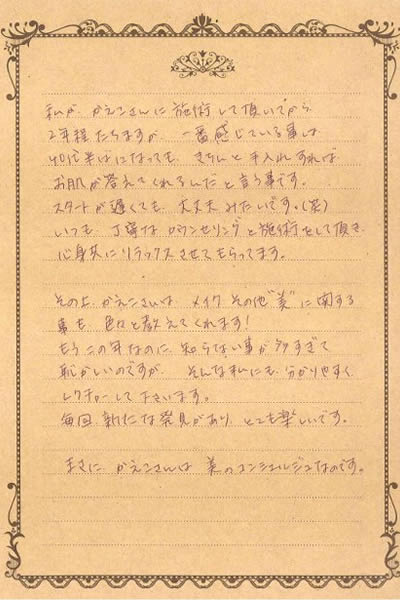 私が、かえこさんに施術して頂いてから
2年程たちますが、一番感じている事は
40代半ばになっても、きちんと手入れすれば
お肌が答えてくれるんだと言う事です。
スタートが遅くても、大丈夫みたいです。(笑)
いつも、丁寧なカウンセリングと施術をして頂き
心身共にリラックスさせてもらってます。
その上、かえこさんは、メイク、その他"美"に関する
事も、色々と教えてくれます!
もうこの年なのに、知らない事が多すぎて
恥かしいのですが、そんな私にも、分かりやすく
レクチャーして下さいます。
毎回、新たな発見があり、とても楽しいです。
まさに、かえこさんは、美のコンシェルジュなのです。